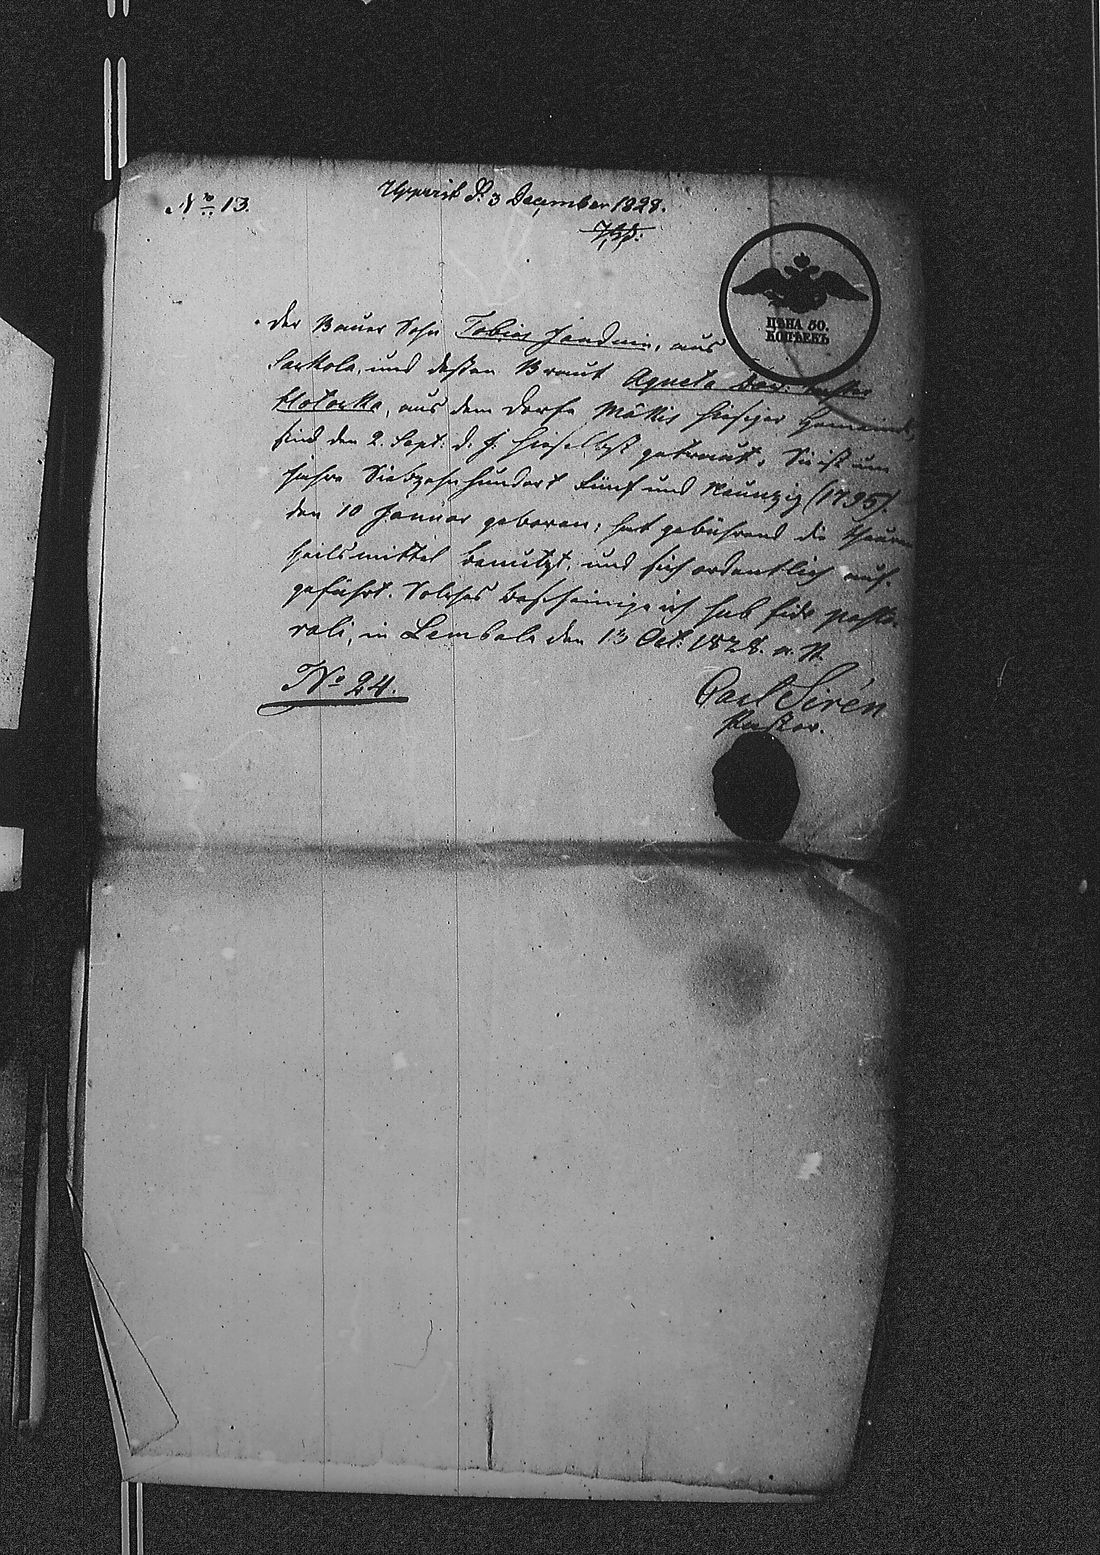 No. 13.
Uppvist d. 3 December 1828.
ЦѢНА 50.
КОПѢЕКЪ
Der Bauer Sohn Tobias, aus
und dessen Braut Agneta Dav: Tochter
aus dem Dorfe Mättis hiesiger Gemeinde,
sind den 2. Sept. d. J. hieselbst getraut. Sie ist im
Jahre Siebzehnhundert Fünf und Neunzig (1795).
den 10 Januar geboren; hat gebührend die
Heilsmittel benutzt, und sich ordentlich auf-
geführt. Solches bescheinige ich sub fide pasto-
rali, in Lembala den 13 Oct. 1828. a. St.
No 24.
Carl Sirén
Pastor.